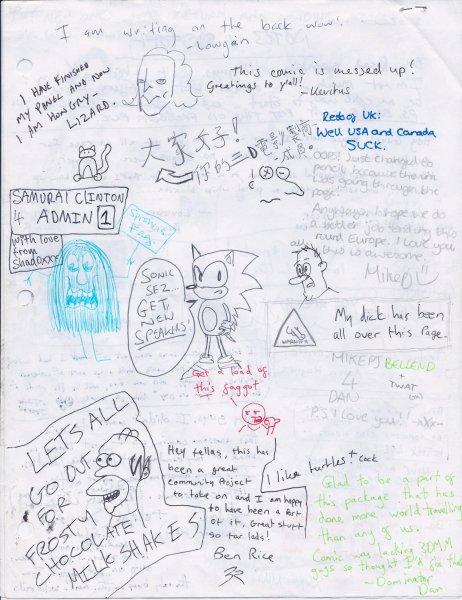 I am writing on the back wow!
-Lowgain
I HAVE FINISHED
MY PANEL AND NOW
I AM HONGRY-
LIZARD.
This comic is messed up!
Greetings to y'all! -Kevichus
大家好!
你的三D電影製前
成員
Redeg UK:
Well USA and Canada
SUCK.
OOPS! Just changed to
pencil, because the ink
was going through the
page.
Anyways, I hope we do
a better job sending this
round Europe. I love you
all, this is awesome.
MikeD
SAMURAI CLINTON
4 ADMIN 1
with love
from
Shadoxxx
Sprinkle
Egg
SONIC
SEZ...
GET
NEW
SPEAKERS!
WARNING
My dick has been
all over this Page.
MIKEPJ BELLEND
4 + TWAT
DAN
P.S. I love you! -xXx-
Get a load of
this faggot
LETS ALL
GO OUT
FOR
FROSTY
CHOCOLATE
MILKSHAKES
Hey fellas, this has
been a great
community project
to take on and I am happy
to have been a part
of it. Great stuff
so far lads!
Ben Rice
I like turtles + cock
Glad to be a part of
this package that has
done more world travelling
than any of us.
Comic was lacking 3DMM
guys so thought I'd fix that
-Dominator
Dan